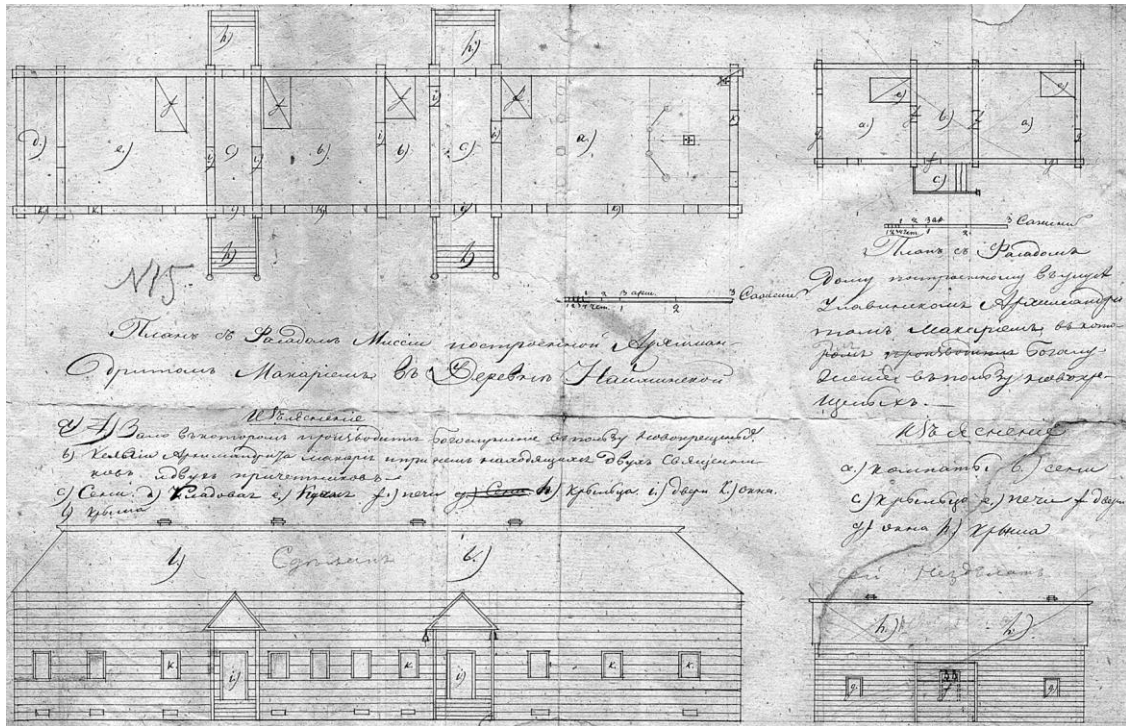 h) h)
д.) e.) f c) f b) f b) c) f a.)
h) h)
N15.
1 2 3 арш. 1 2 3 Сажени
Планъ съ Фасадомъ Миссіи построенной Архиман-
дритомъ Макаріемъ въ Деревнѣ Найминской
Изъясненіе
Зало въ которомъ производитъ Богослуженіе въ пользу новокрещеныхъ.
b) Келліи Архимандрита Макарія и при немъ находящихся двухъ Священни-
ковъ и двухъ причетниковъ.
c) Сени. d) Кладовая e.) f.) печи h) Крыльца. i.) двери K.) окна.
l) Крыша
l.) Сдѣланъ l.)
к. i.) к. i.) к. к.
a.) e) b) a.) e)
c)
Сажени
Планъ съ Фасадомъ
Дому построенному въ улусѣ
Улалинскомъ Архимандри
томъ Макаріемъ, въ кото-
ромъ Богослу-
женіе въ пользу новокре-
щеныхъ.—
Изъясненіе
a.) комнаты b.) сени
c) крыльцо e.) печи f двери
g) окна h.) крыша
сей Нездѣланъ
h.) h.)
g. f g.